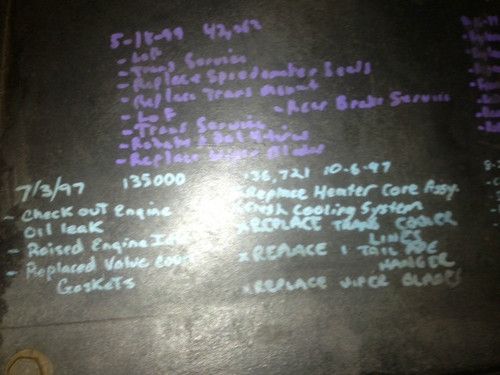 5-18-99
- LOF
- Trans Service
- Replace Speedometer Seals
- Replace Trans Mount
- LOF - Rear Brake Service
- Trans Service
- Rotate & Bal 4 tires
- Replace Wiper Blades
7/3/97 135000
- Check out Engine
Oil leak
- Raised Engine
- Replaced Valve Cover
Gaskets
136,721 10-6-97
Replace Heater Core Assy.
Flush Cooling System
x REPLACE TRANS COOLER
LINES
x REPLACE 1 TAIL PIPE
HANGER
x REPLACE WIPER BLADES